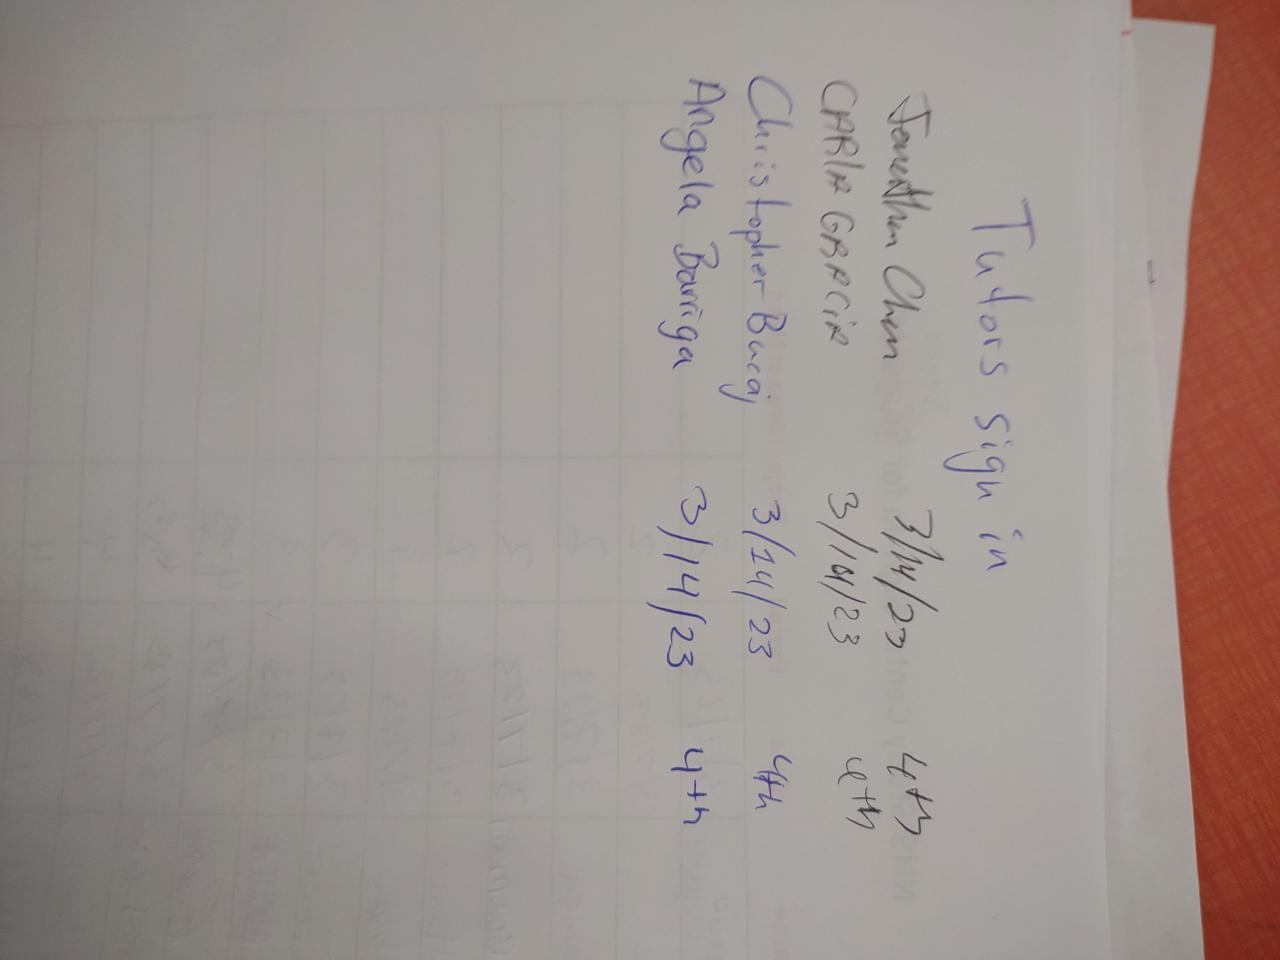 Tutors sign in
Jonathan Chen 3/14/23 4th
CARLA GARCIA 3/14/23 4th
Christopher Bucaj 3/14/23 4th
Angela Barriga 3/14/23 4th